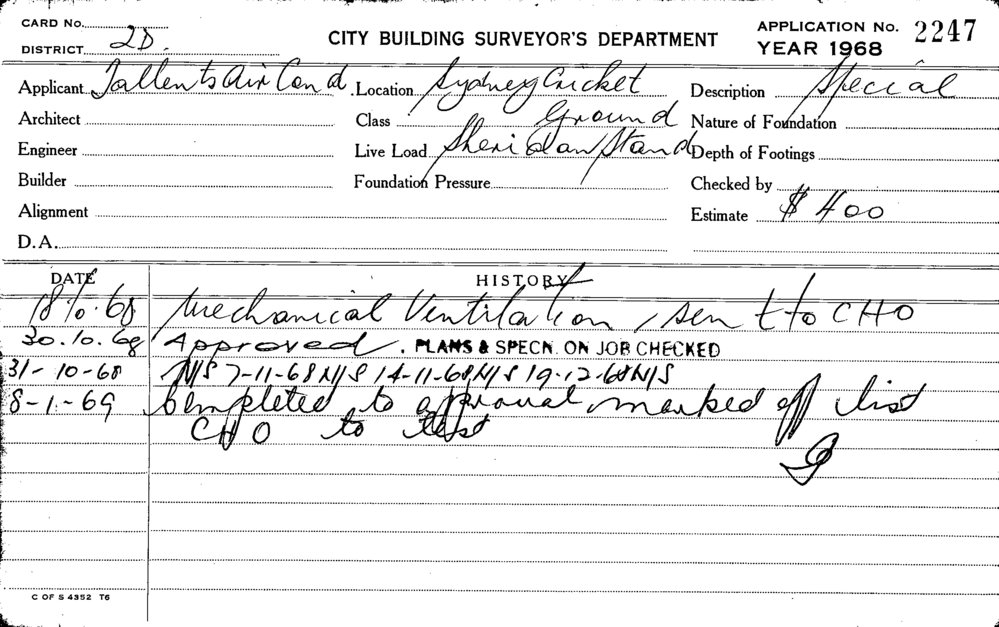 CARD No.
DISTRICT 2D.
CITY BUILDING SURVEYOR'S DEPARTMENT
APPLICATION No. 2247
YEAR 1968
Applicant Tallents Air Cond. Location Sydney Cricket Description Special
Architect Class Ground Nature of Foundation
Engineer Live Load Sheridan Stand Depth of Footings
Builder Foundation Pressure Checked by
Alignment Estimate $400
D.A.
DATE HISTORY
18/10.68 Mechanical Ventilation, sent to CHO
30.10.68 Approved. PLANS & SPECN. ON JOB CHECKED
31-10-68 N/S 7-11-68 N/S 14-11-68 N/S 19-12-68 N/S
8-1-69 Completed to approval, marked off list
CHO to test
C OF S 4352 T6